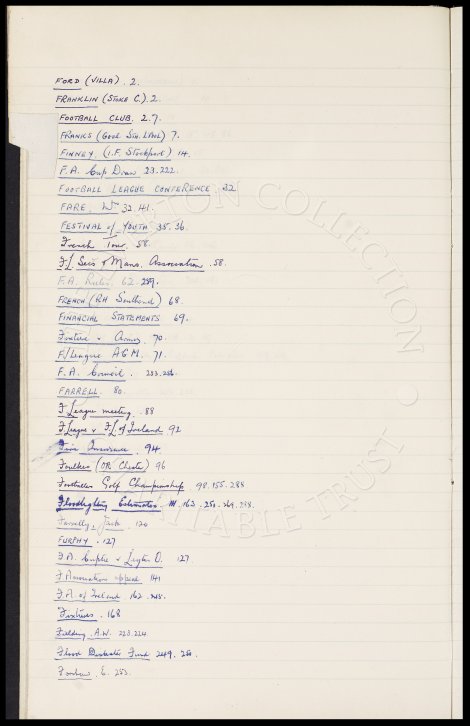 FORD (VILLA). 2.
FRANKLIN (STOKE C.) 2.
FOOTBALL CLUB. 2.7.
FRANKS (Good Sth. LPool) 7.
FINNEY. (I.F. Stockport) 14.
F.A. Cup Draw 23.222.
FOOTBALL LEAGUE CONFERENCE. 32
FARE, 32.41.
FESTIVAL of YOUTH 35.36.
French Tour. 58.
F/L Secs & Mans. Association. 58.
F.A. Rules. 62.259.
FRENCH (RH Southend) 68.
FINANCIAL STATEMENTS 69.
70.
F/League A G M. 71.
F. A. Council.
FARRELL. 80.
F League meeting. 88
F League v F.L. of Ireland 92
Fire Insurance. 94
Faulkes (OR Chester) 96
Footballers Golf Championship 98.155.288
Floodlighting Estimates. 163.
Farrelly, Jack.
FURPHY. 127
F.A. Cuptie v Leyton O. 127.
F Association appeal 141
F.A. of Ireland 162.
Fixtures. 168
Fielding. A.W. 223.224
Flood Disaster Fund 249.
E. 253.
WATON COLLECTION
CHARITABLE TRUST